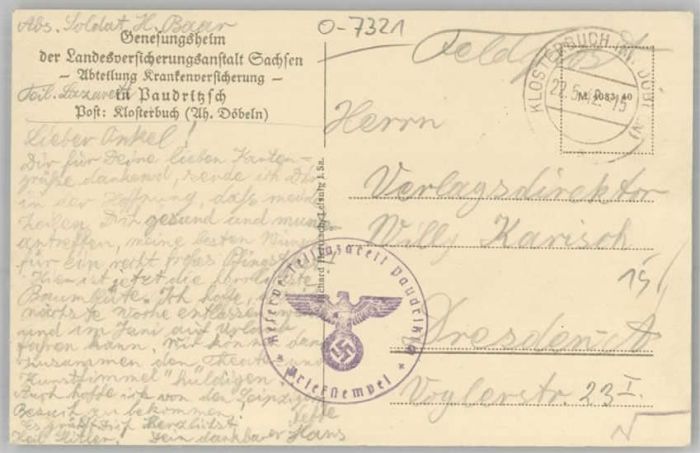 Abs. Soldat H. Baar
O-7321
Genesungsheim
der Landesversicherungsanstalt Sachsen
– Abteilung Krankenversicherung –
Teil. Lazarett
in Paudritzsch
Post: Klosterbuch (Ah. Döbeln)
Feldpost
KLOSTERBUCH
22.5.42
M 4033 40
Herrn
Verlagsdirektor
Willy Karisch
Dresden-A
Voglerstr. 23 I.
Lieber Onkel!
Dir für Deine lieben Karten-
grüße dankend, sende ich Dir
in der Hoffnung, daß mein
Zeilen Dich gesund und mun
antreffen, meine besten Wün
für ein recht frohes Pfings
Hier ist jetzt die herrlichste
Baumblüte. Ich hoffe,
nächste Woche entlassen
und im Juni auf Urlaub
fahren kann. Wir können dan
zusammen dem Theater und
Kunsthimmel "huldigen".
Auch hoffe ich von den Leipzig
Besuch zu bekommen.
Es grüßt Dich herzlichst
Heil Hitler! Dein dankbarer Neffe
Hans
Reserve-Teillazarett Paudritzsch
Briefstempel